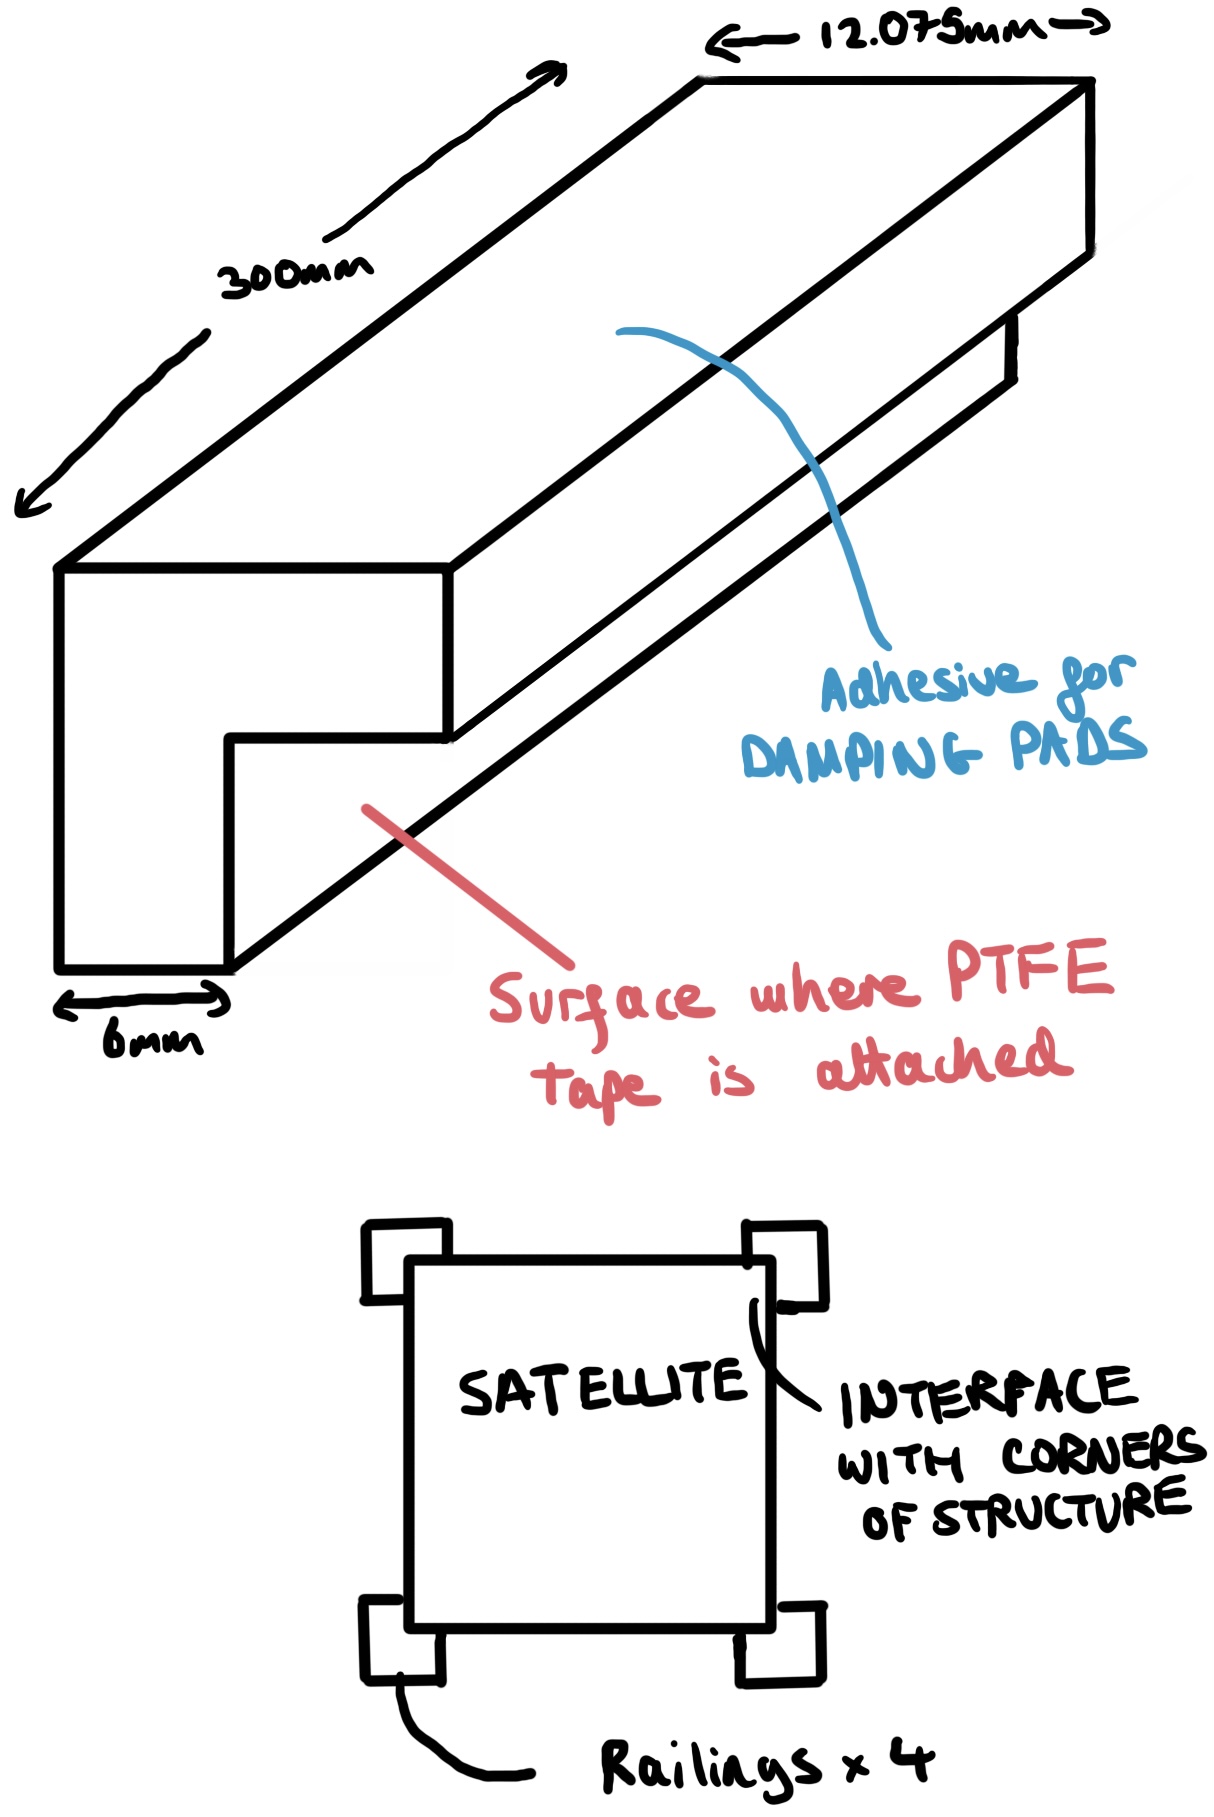 12.075mm
300mm
Adhesive for
DAMPING PADS
Surface where PTFE
tape is attached
6mm
SATELLITE
INTERFACE
WITH CORNERS
OF STRUCTURE
Railings x 4